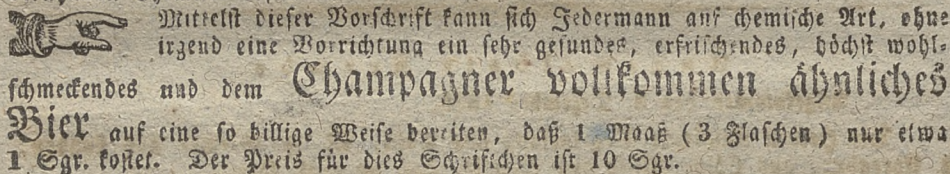 Mittelst dieser Vorschrift kann sich Jedermann auf chemische Art, ohne
irgend eine Vorrichtung ein sehr gesundes, erfrischendes, höchst wohl-
schmeckendes und dem Champagner vollkommen ähnliches
Bier auf eine so billige Weise bereiten, daß 1 Maaß (3 Flaschen) nur etwa
1 Sgr. kostet. Der Preis für dies Schriftchen ist 10 Sgr.